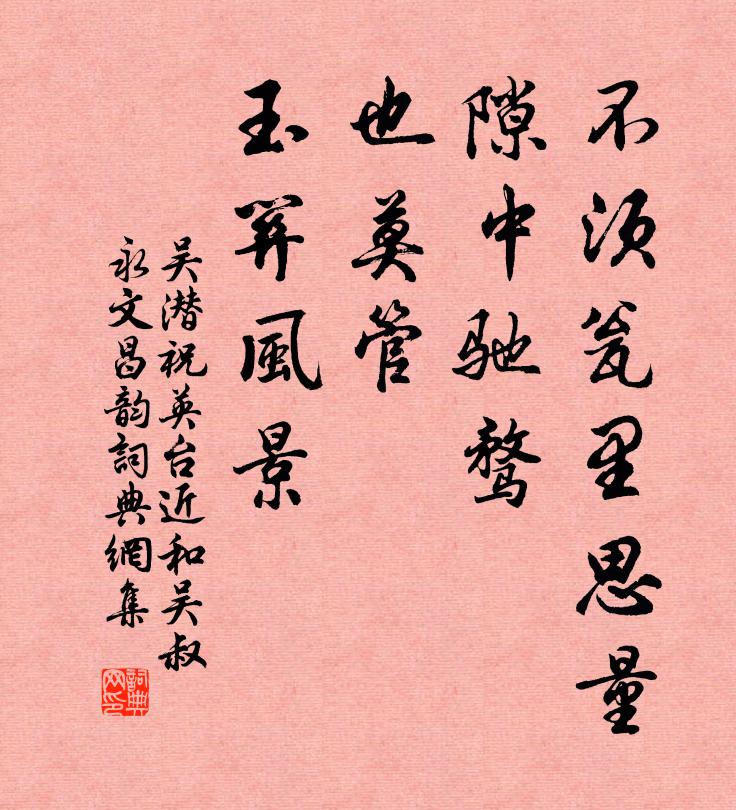 不须瓮里思量
隙中驰骛
也莫管
玉關風景
吴潜祝英台近和吴叔
永文昌韵詞典網集
詞典
网印